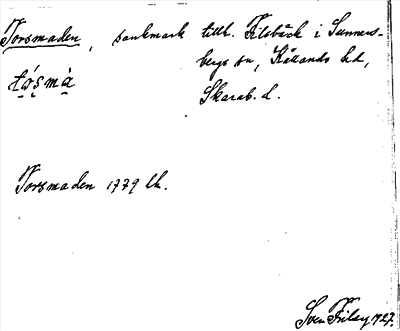 Torsmaden, sankmark tillh. Filsbäck i Sunners-
bergs sn, Kållands hd,
tǻs̥mà̤
Skarab. l.
Torsmaden 1779 lh.
Sven Friley 1727.